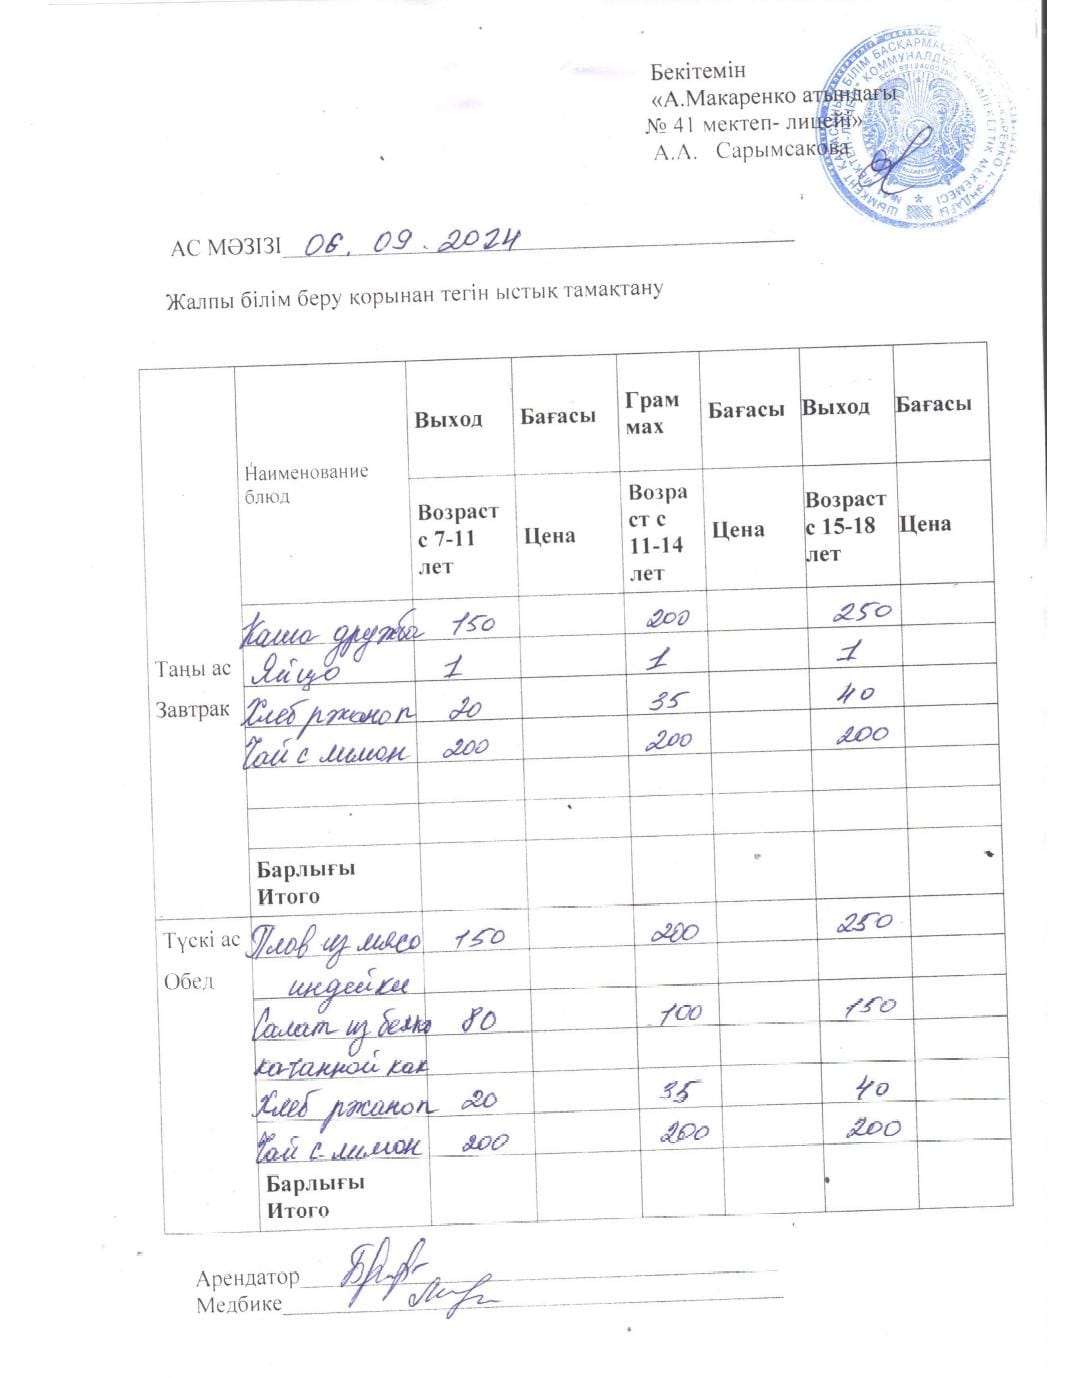 Бекітемін
«А.Макаренко атындағы
№ 41 мектеп- лицейі»
А.А. Сарымсакова
АС МӘЗІЗІ 06. 09. 2024
Жалпы білім беру қорынан тегін ыстық тамақтану
Наименование блюд
Выход Бағасы Грам мах Бағасы Выход Бағасы
Возраст с 7-11 лет Цена Возра ст с 11-14 лет Цена Возраст с 15-18 лет Цена
Таңы ас
Завтрак
Каша дружба 150 200 250
Яйцо 1 1 1
Хлеб ржаноп 20 35 40
Чай с лимон 200 200 200
Барлығы
Итого
Түскі ас
Обед
Плов из мясо 150 200 250
индейки
Салат из белко 80 100 150
качанной кап
Хлеб ржаноп 20 35 40
Чай с лимон 200 200 200
Барлығы
Итого
Арендатор
Медбике